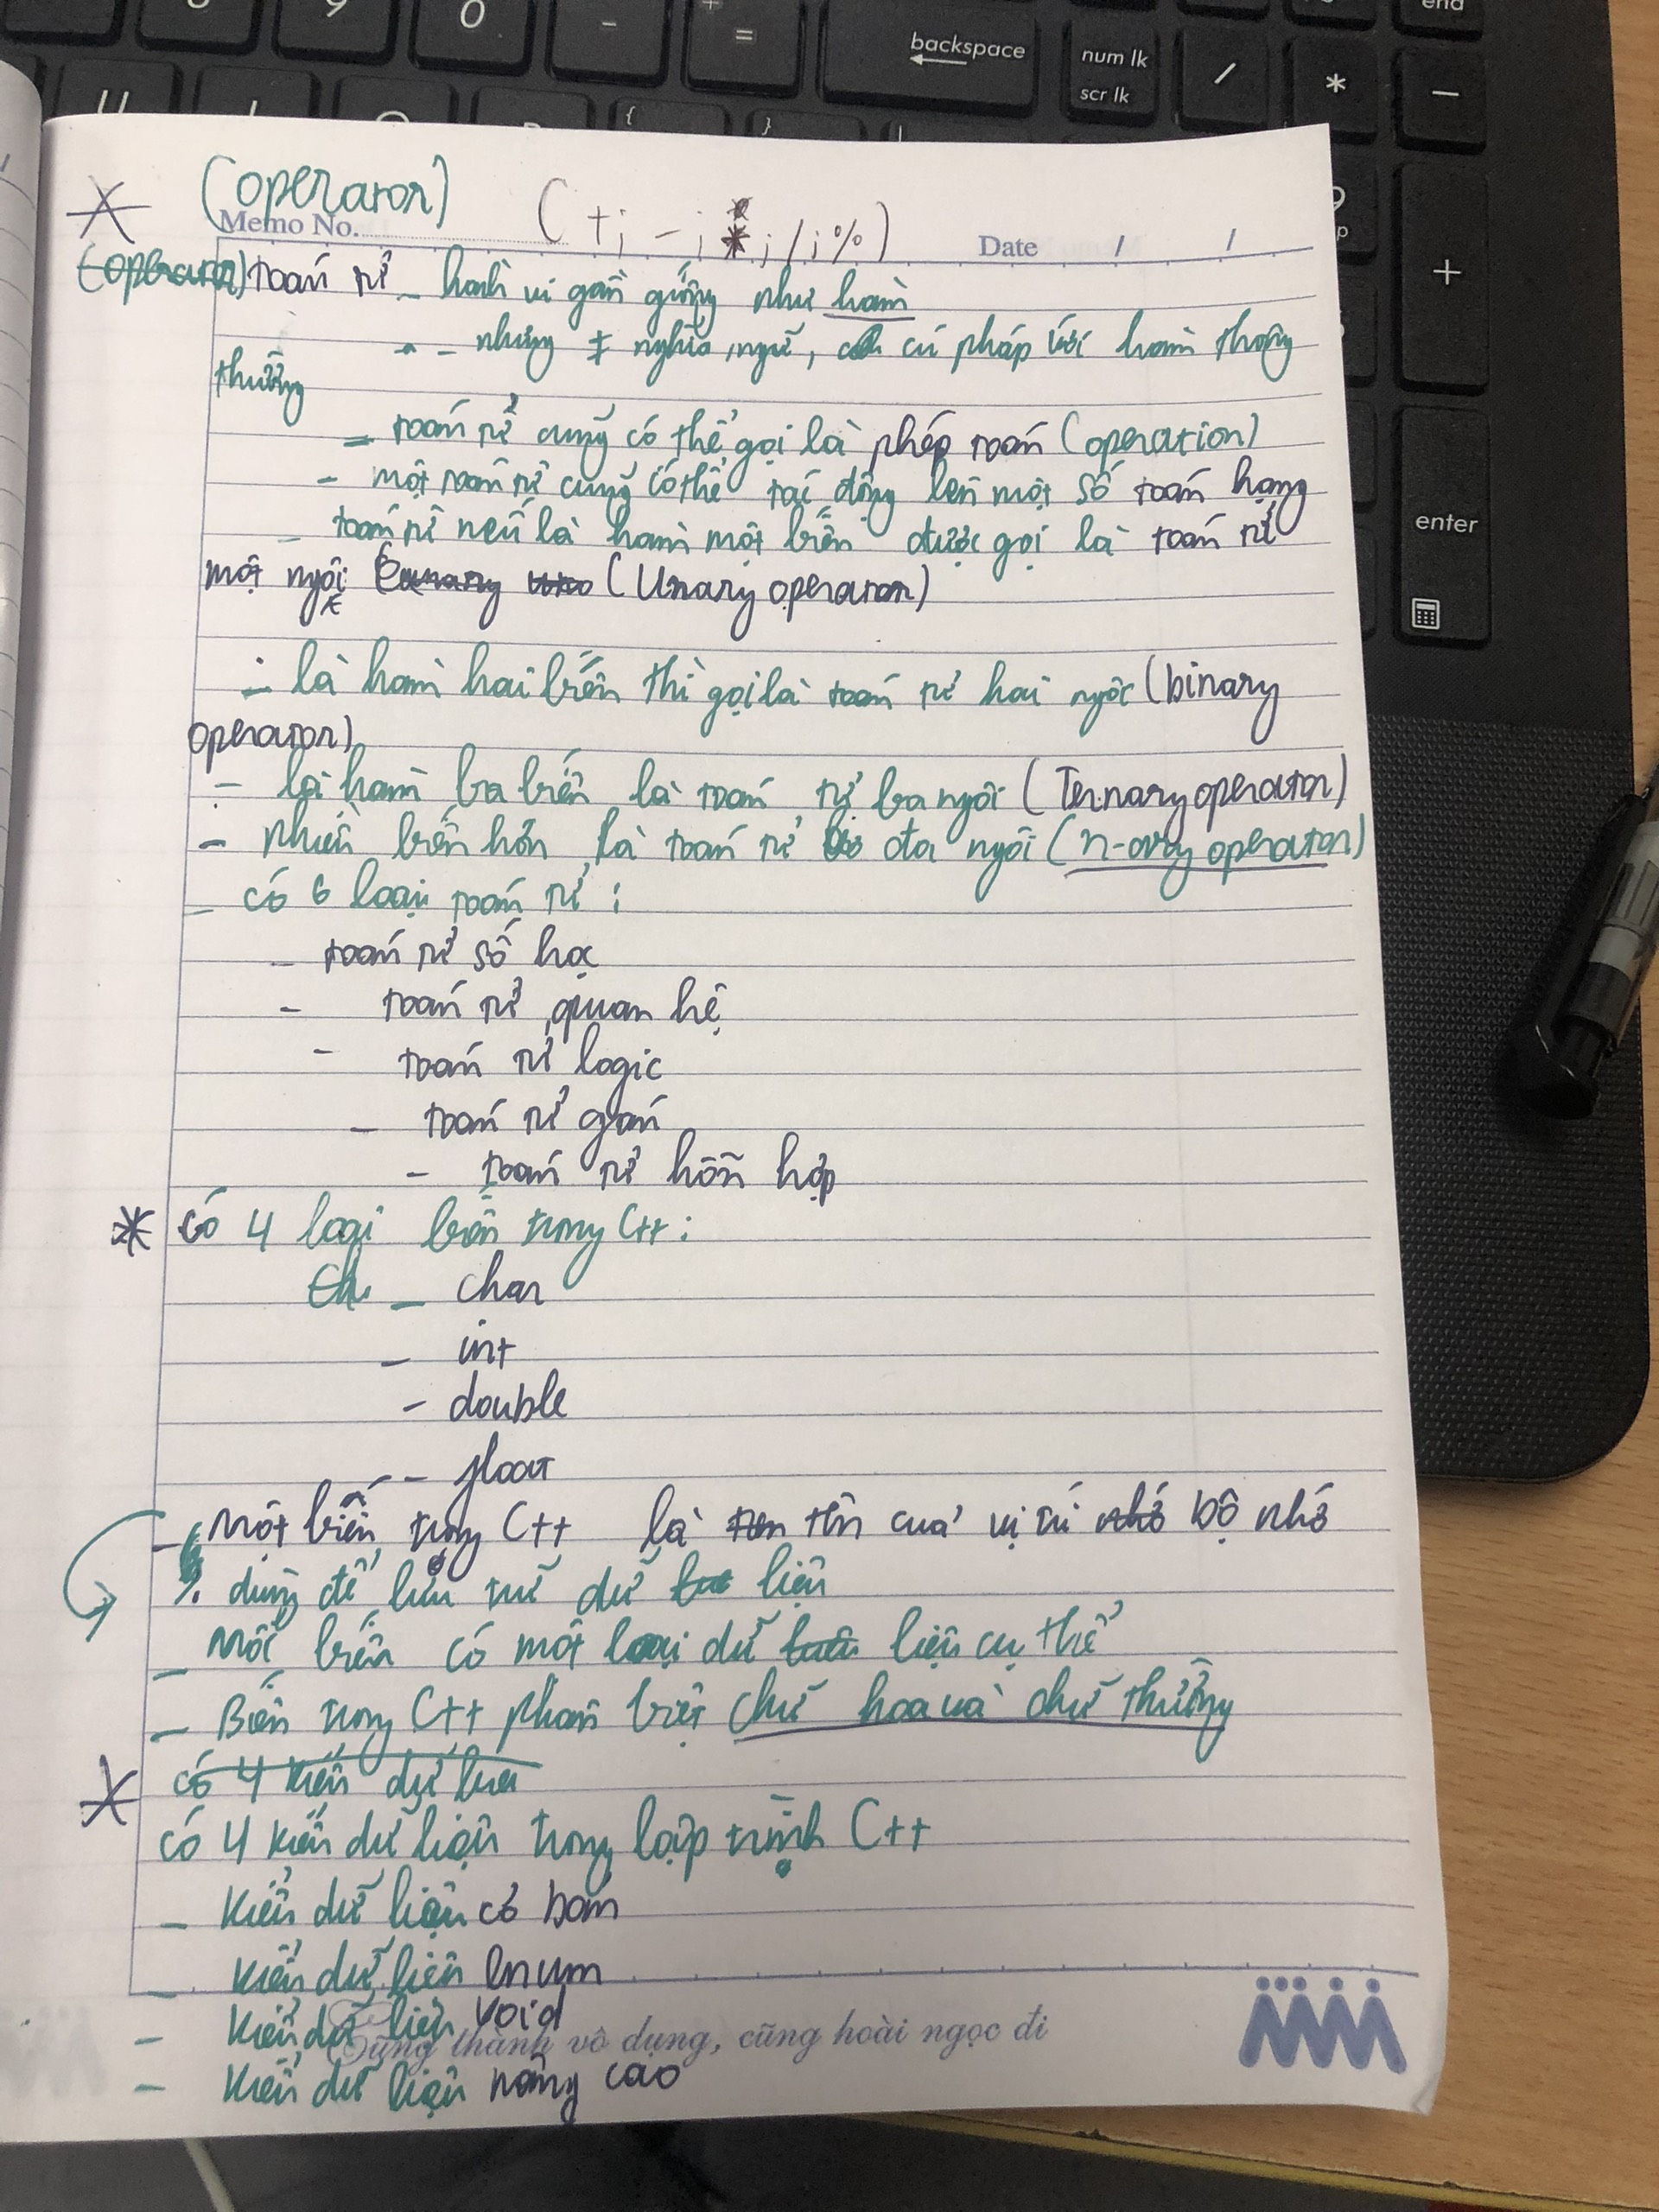 8 9 0 - + =
backspace
num lk
scr lk
/ * -
end
U I O P { }
9
+
enter
(operator) (+; -; *; /; %)
Memo No. Date / /
(operator) toán tử - hành vi gần giống như hàm
- nhưng ≠ nghĩa, ngữ, cú pháp với hàm thông
thường
- toán tử cũng có thể gọi là phép toán (operation)
- một toán tử cũng có thể tác động lên một số toán hạng
- toán tử nếu là hàm một biến được gọi là toán tử
một ngôi (Unary operator)
- là hàm hai biến thì gọi là toán tử hai ngôi (binary
operator)
- là hàm ba biến là toán tử ba ngôi (Ternary operator)
- nhiều biến hơn là toán tử đa ngôi (n-ary operator)
- có 6 loại toán tử :
- toán tử số học
- toán tử quan hệ
- toán tử logic
- toán tử gán
- toán tử hỗn hợp
* có 4 loại biến trong C++ :
Ch - char
- int
- double
- float
- Một biến trong C++ là tên của vị trí bộ nhớ
dùng để lưu trữ dữ liệu
- Mỗi biến có một loại dữ liệu cụ thể
- Biến trong C++ phân biệt chữ hoa và chữ thường
có 4 kiểu dữ
* có 4 kiểu dữ liệu trong lập trình C++
- Kiểu dữ liệu cơ bản
- Kiểu dữ liệu enum
- Kiểu dữ liệu void
thành vô dụng, cũng hoài ngọc đi
- Kiểu dữ liệu nâng cao